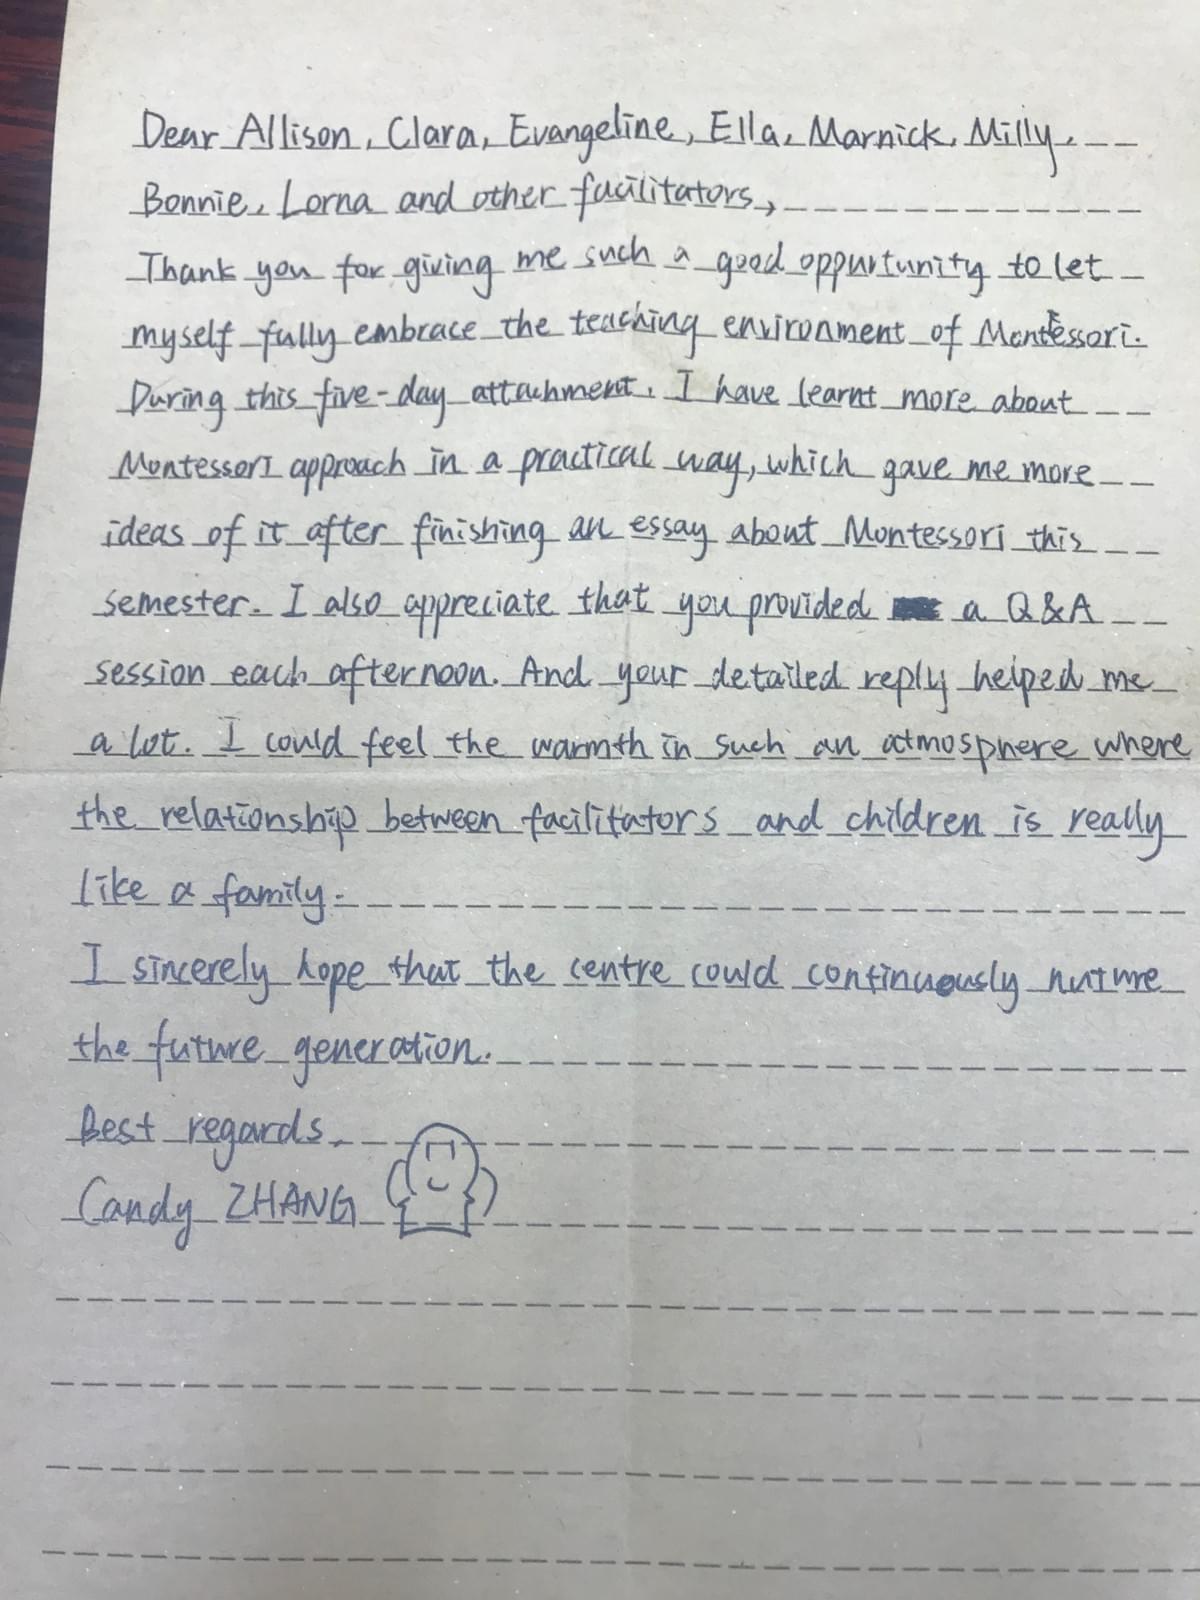 Dear Allison, Clara, Evangeline, Ella, Marnick, Milly,
Bonnie, Lorna and other facilitators,
Thank you for giving me such a good oppurtunity to let
myself fully embrace the teaching environment of Montessori.
During this five-day attachment, I have learnt more about
Montessori approach in a practical way, which gave me more
ideas of it after finishing an essay about Montessori this
semester. I also appreciate that you provided a Q&A
session each afternoon. And your detailed reply helped me
a lot. I could feel the warmth in such an atmosphere where
the relationship between facilitators and children is really
like a family.
I sincerely hope that the centre could continuously nuture
the future generation.
Best regards,
Candy ZHANG